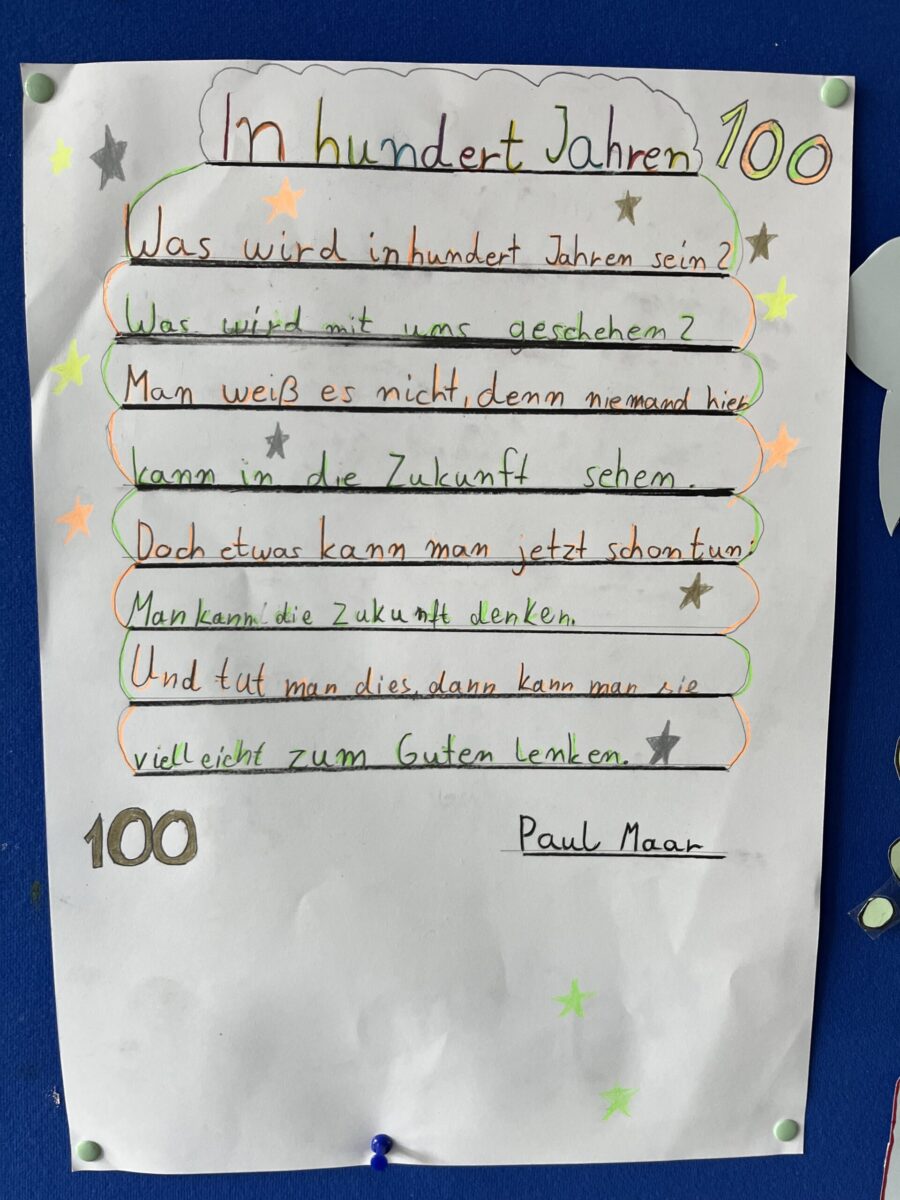 In hundert Jahren 100
Was wird in hundert Jahren sein?
Was wird mit uns geschehen?
Man weiß es nicht, denn niemand hier
kann in die Zukunft sehen.
Doch etwas kann man jetzt schon tun:
Man kann die Zukunft denken.
Und tut man dies, dann kann man sie
vielleicht zum Guten lenken.
100
Paul Maar